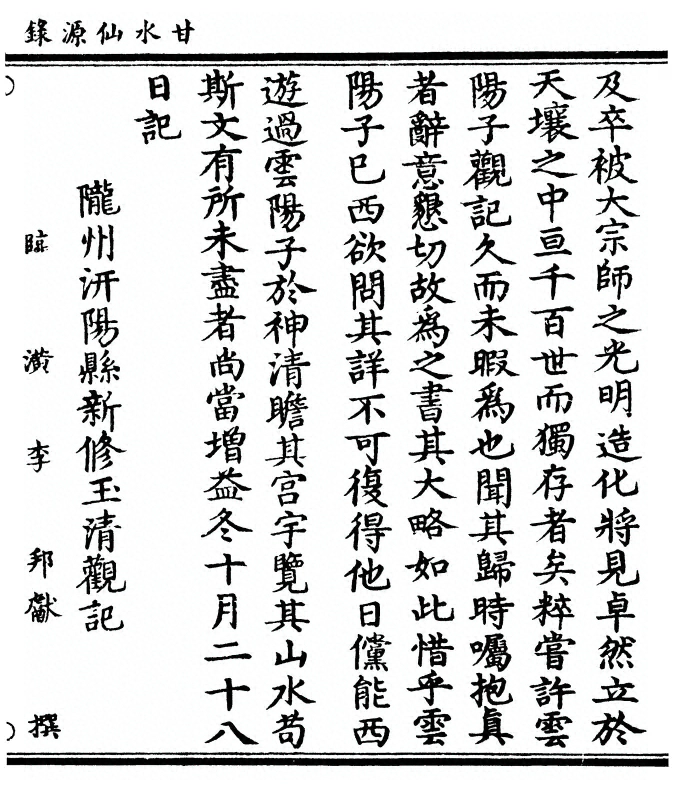 甘水仙源錄
及卒被大宗師之光明造化將見卓然立於
天壤之中亘千百世而獨存者矣粹嘗許雲
陽子觀記久而未暇爲也聞其歸時囑抱眞
者辭意懇切故爲之書其大略如此惜乎雲
陽子已西欲問其詳不可復得他日儻能西
遊過雲陽子於神清瞻其宮宇覽其山水苟
斯文有所未盡者尚當增益冬十月二十八
日記
隴州汧陽縣新修玉清觀記
臨潢李邦獻撰